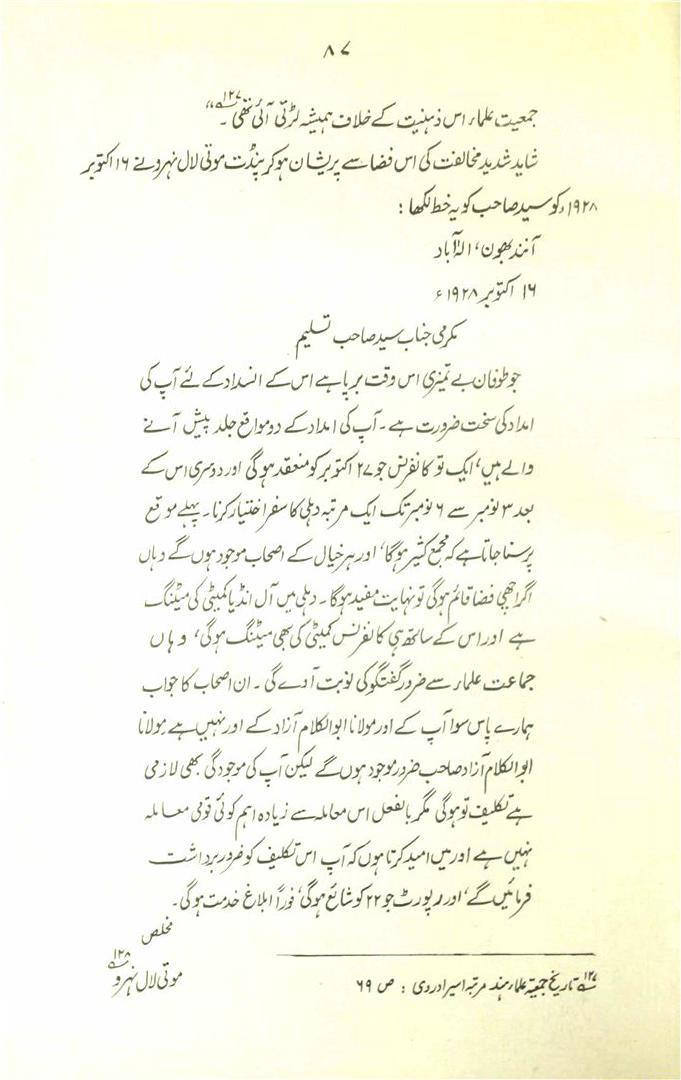 ۸۷
جمعیت علماء اس ذہنیت کے خلاف ہمیشہ لڑتی آئی تھی۔"۱۲۷
شاید شدید مخالفت کی اس فضا سے پریشان ہو کر پنڈت موتی لال نہرو نے ۱۶ اکتوبر
۱۹۲۸ء کو سید صاحب کو یہ خط لکھا :
آنند بھون، الہ آباد
۱۶ اکتوبر ۱۹۲۸ء
مکرمی جناب سید صاحب تسلیم
جو طوفان بے تمیزی اس وقت برپا ہے اس کے انسداد کے لئے آپ کی
امداد کی سخت ضرورت ہے۔ آپ کی امداد کے دو مواقع جلد پیش آنے
والے ہیں، ایک تو کانفرنس جو ۲۷ اکتوبر کو منعقد ہوگی اور دوسری اس کے
بعد ۳ نومبر سے ۶ نومبر تک ایک مرتبہ دہلی کا سفر اختیار کرنا۔ پہلے موقع
پر سنا جاتا ہے کہ مجمع کثیر ہوگا، اور ہر خیال کے اصحاب موجود ہوں گے وہاں
اگر اچھی فضا قائم ہوگی تو نہایت مفید ہوگا۔ دہلی میں آل انڈیا کمیٹی کی میٹنگ
ہے اور اس کے ساتھ ہی کانفرنس کمیٹی کی بھی میٹنگ ہوگی، وہاں
جماعت علماء سے ضرور گفتگو کی نوبت آدے گی۔ ان اصحاب کا جواب
ہمارے پاس سوا آپ کے اور مولانا ابوالکلام آزاد کے اور نہیں ہے مولانا
ابوالکلام آزاد صاحب ضرور موجود ہوں گے لیکن آپ کی موجودگی بھی لازمی
ہے تکلیف تو ہوگی مگر بالفعل اس معاملہ سے زیادہ اہم کوئی قومی معاملہ
نہیں ہے اور میں امید کرتا ہوں کہ آپ اس تکلیف کو ضرور برداشت
فرمائیں گے، اور رپورٹ جو ۲۲ کو شائع ہوگی، فوراً ابلاغ خدمت ہوگی۔
مخلص
موتی لال نہرو ۱۲۸
۱۲۷ تاریخ جمعیۃ علماء ہند مرتبہ اسیر ادروی : ص ۶۹